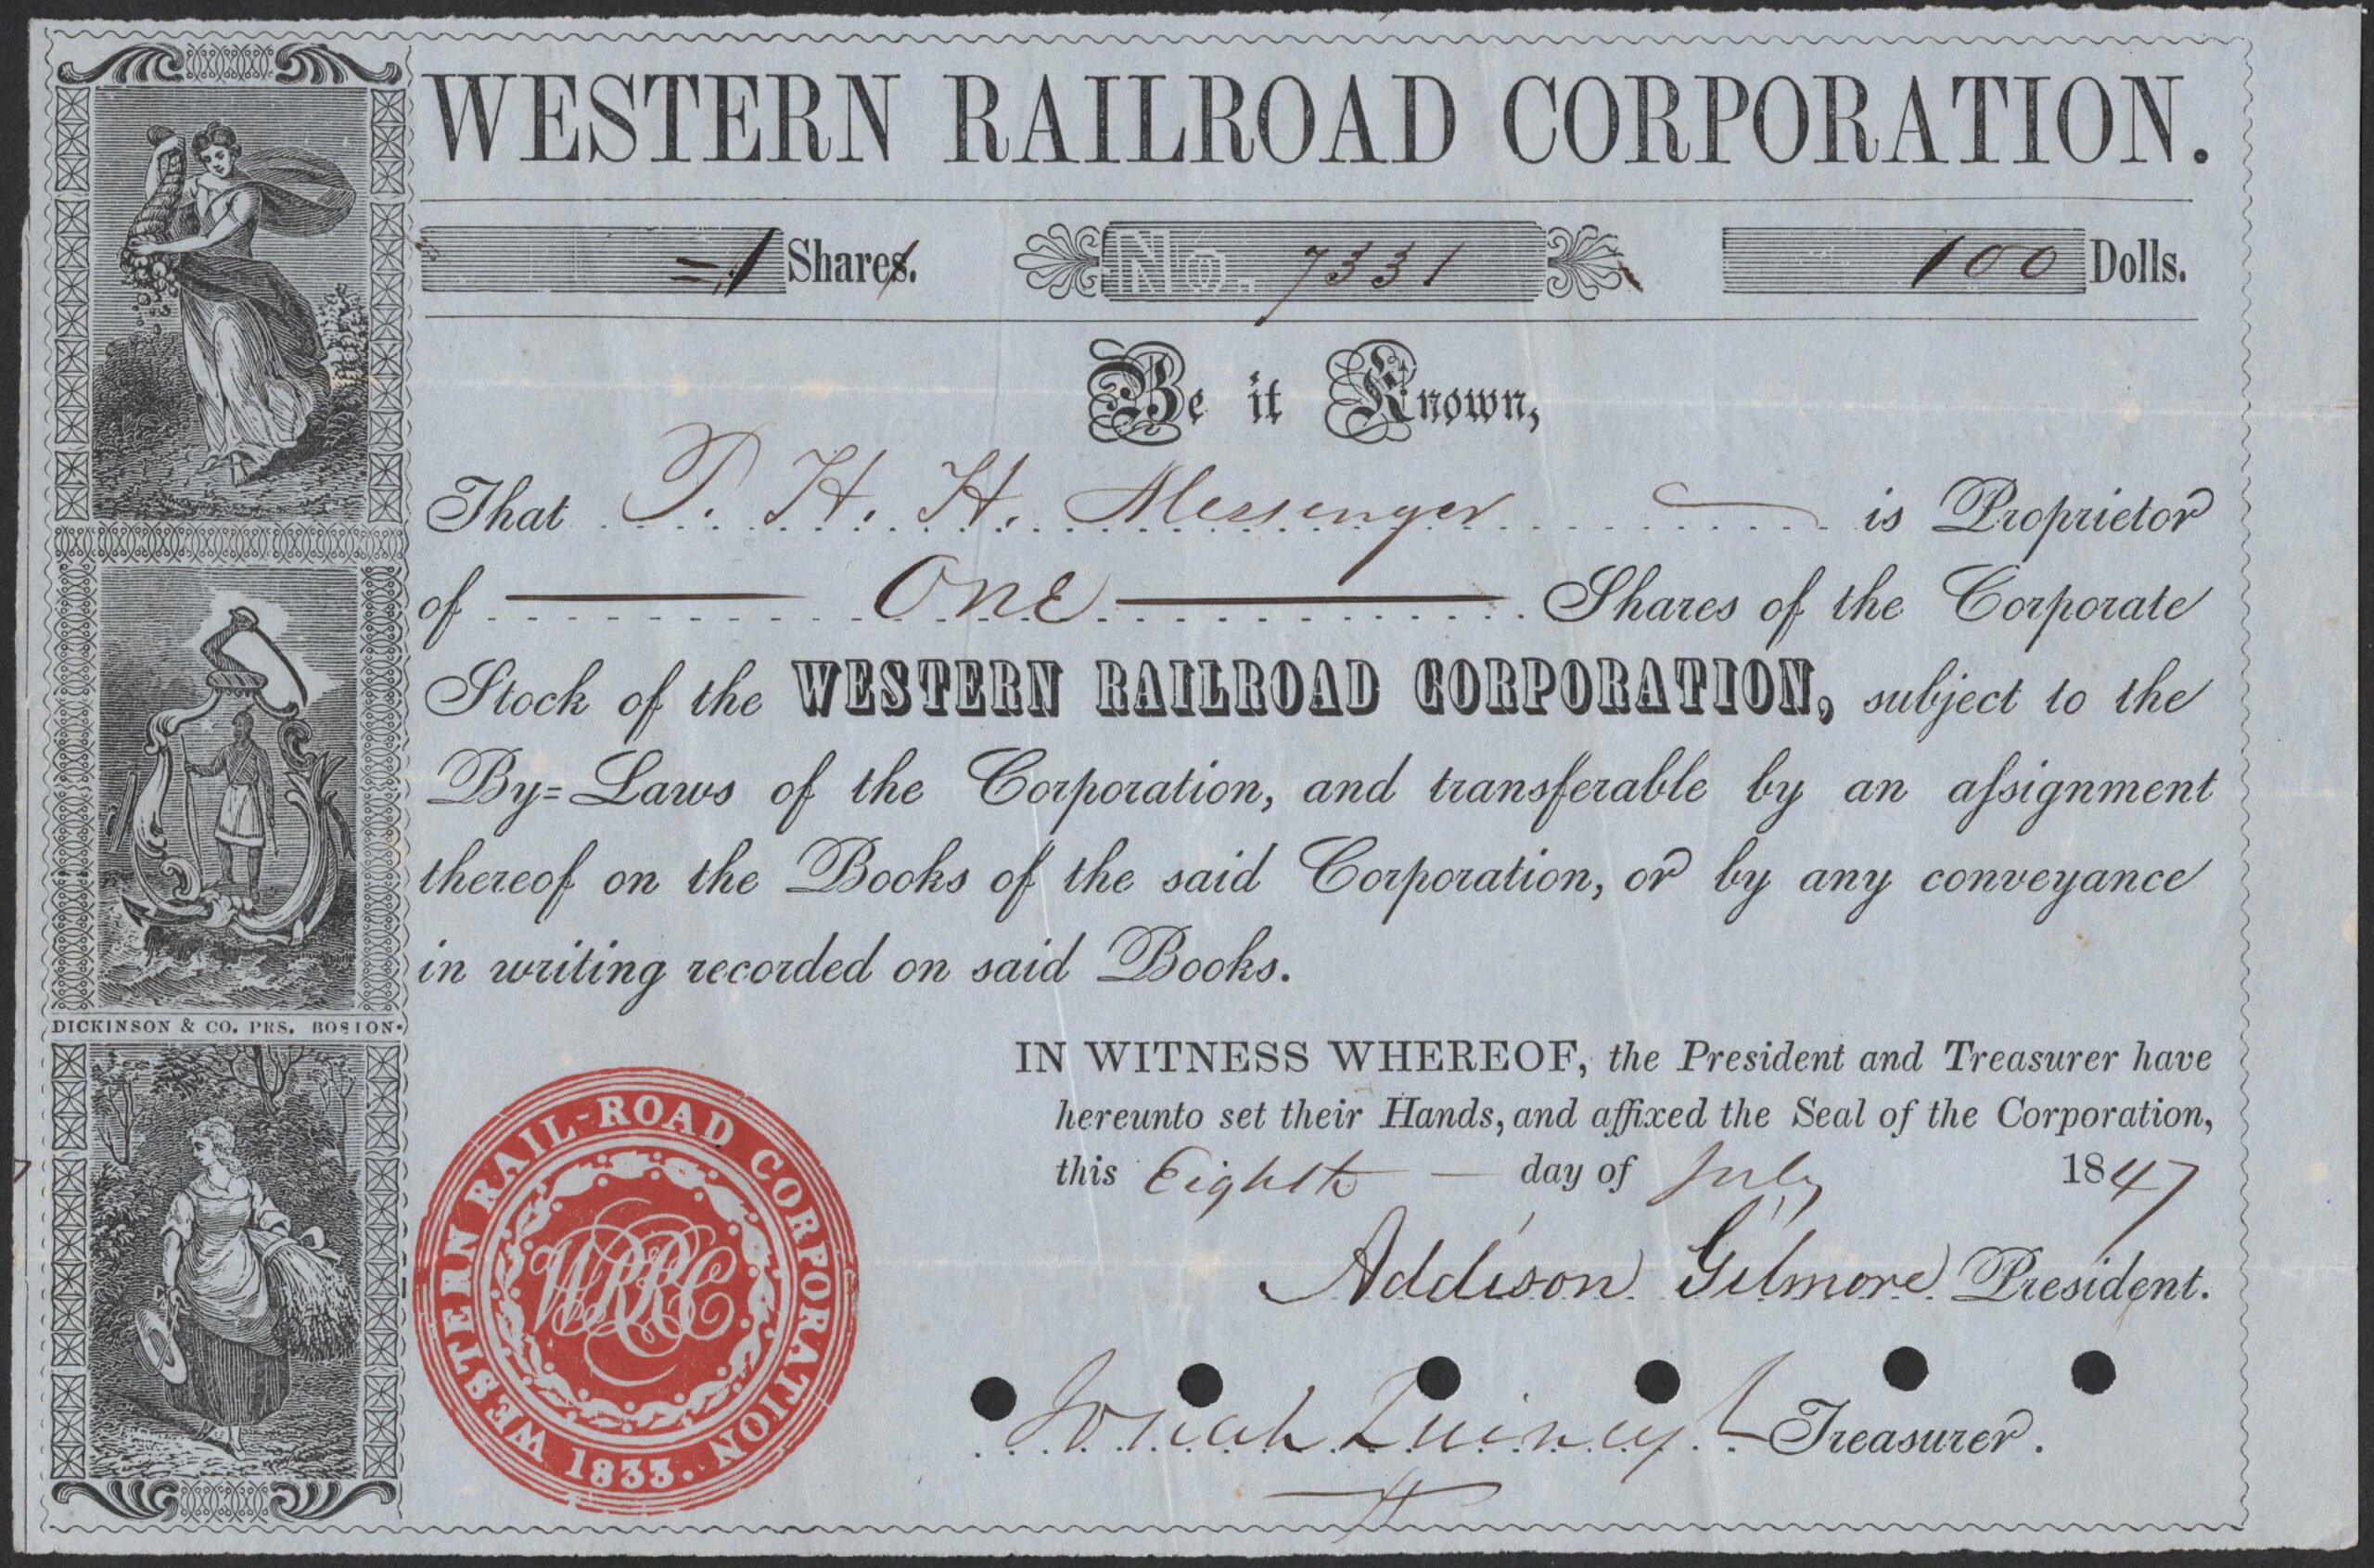 WESTERN RAILROAD CORPORATION.
=1 Shares. No. 7331 100 Dolls.
Be it Known,
That T. H. H. Messenger is Proprietor
of One Shares of the Corporate
Stock of the WESTERN RAILROAD CORPORATION, subject to the
By=Laws of the Corporation, and transferable by an aſsignment
thereof on the Books of the said Corporation, or by any conveyance
in writing recorded on said Books.
DICKINSON & CO. PRS. BOSTON.
IN WITNESS WHEREOF, the President and Treasurer have
hereunto set their Hands, and affixed the Seal of the Corporation,
this Eighth — day of July 1847
Addison Gilmore President.
Josiah Quincy Jr Treasurer.
WESTERN RAIL-ROAD CORPORATION. 1833.
WRRC